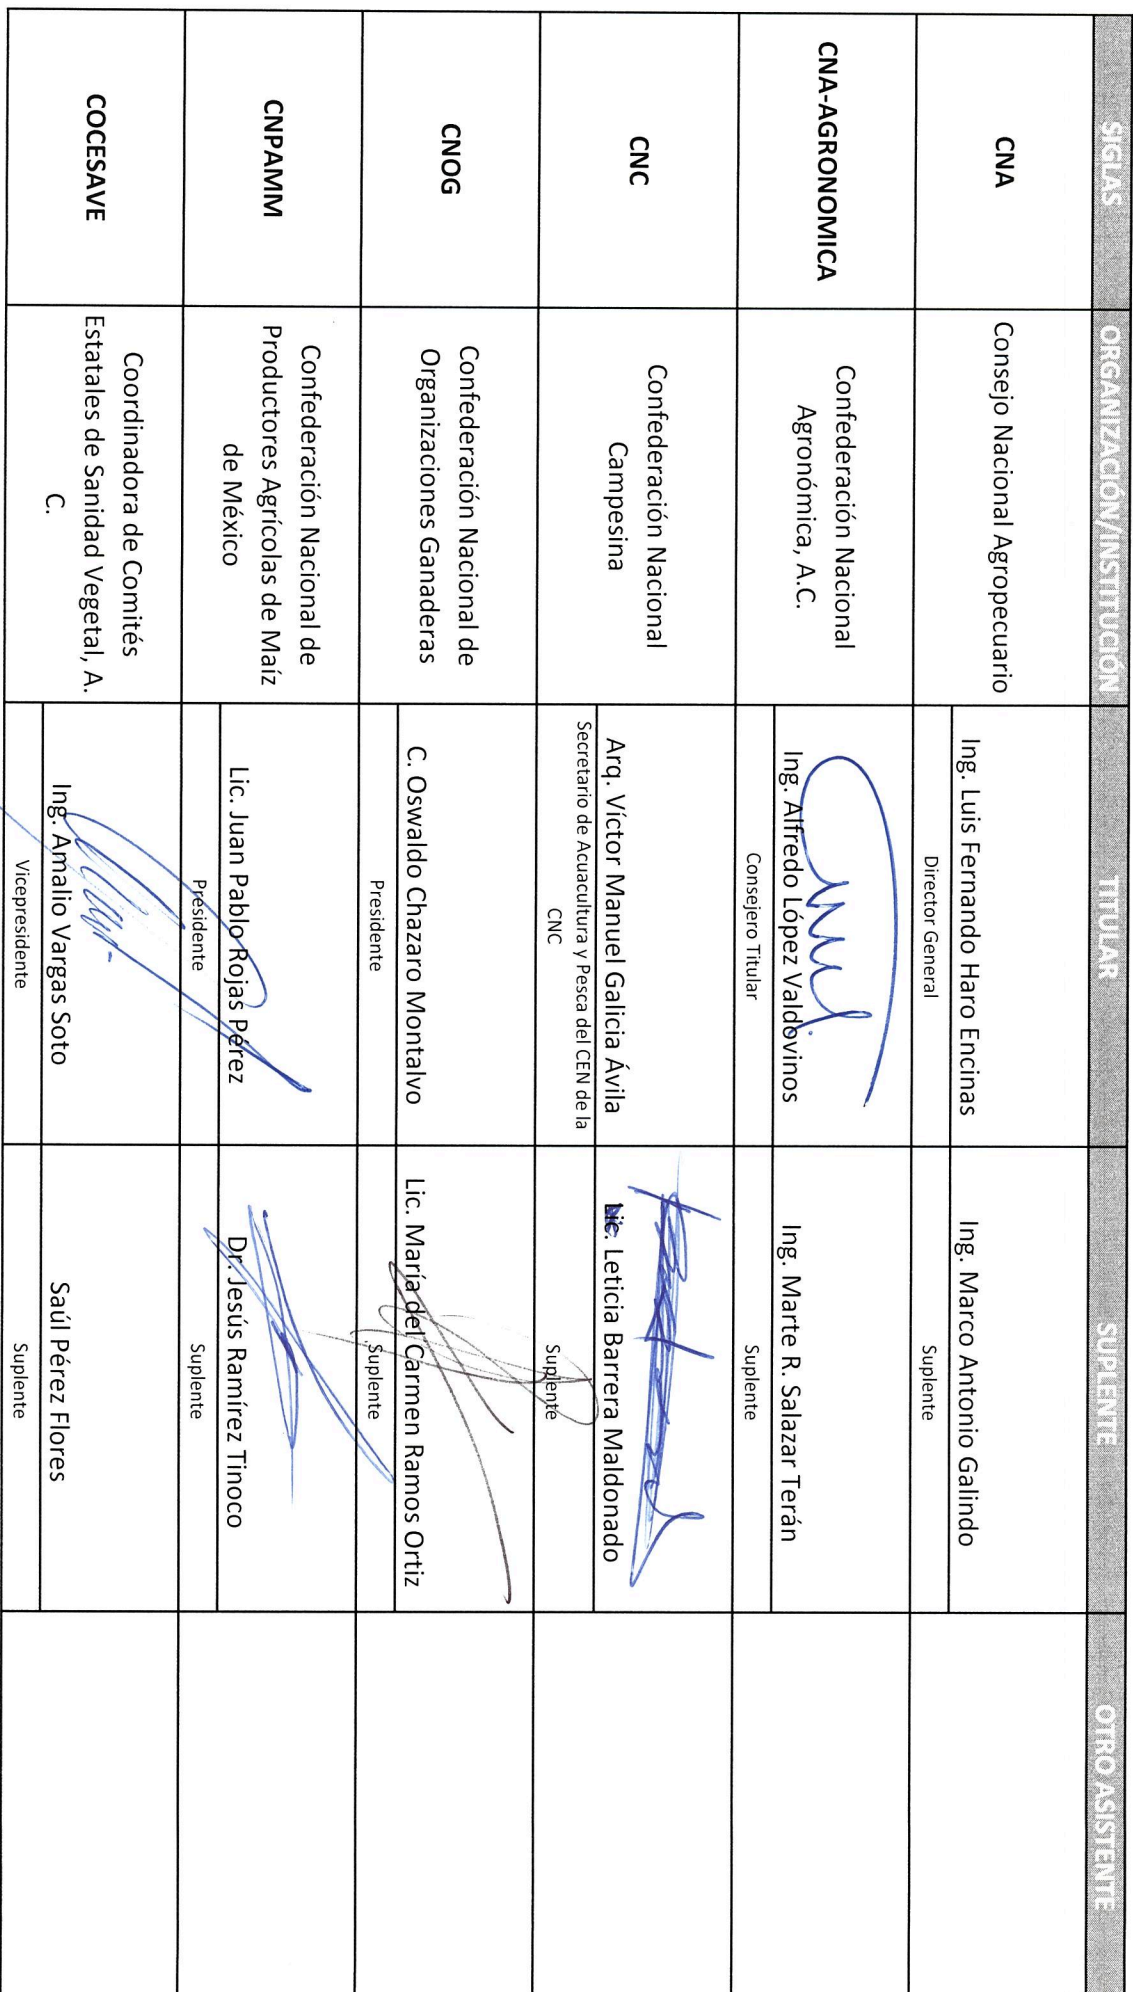 SIGLAS
ORGANIZACIÓN/INSTITUCIÓN
TITULAR
SUPLENTE
OTRO ASISTENTE
CNA
Consejo Nacional Agropecuario
Ing. Luis Fernando Haro Encinas
Director General
Ing. Marco Antonio Galindo
Suplente
CNA-AGRONOMICA
Confederación Nacional
Agronómica, A.C.
Ing. Alfredo López Valdovinos
Consejero Titular
Ing. Marte R. Salazar Terán
Suplente
CNC
Confederación Nacional
Campesina
Arq. Víctor Manuel Galicia Ávila
Secretario de Acuacultura y Pesca del CEN de la
CNC
Lic. Leticia Barrera Maldonado
Suplente
CNOG
Confederación Nacional de
Organizaciones Ganaderas
C. Oswaldo Chazaro Montalvo
Presidente
Lic. María del Carmen Ramos Ortiz
Suplente
CNPAMM
Confederación Nacional de
Productores Agrícolas de Maíz
de México
Lic. Juan Pablo Rojas Pérez
Presidente
Dr. Jesús Ramírez Tinoco
Suplente
COCESAVE
Coordinadora de Comités
Estatales de Sanidad Vegetal, A.
C.
Ing. Amalio Vargas Soto
Vicepresidente
Saúl Pérez Flores
Suplente